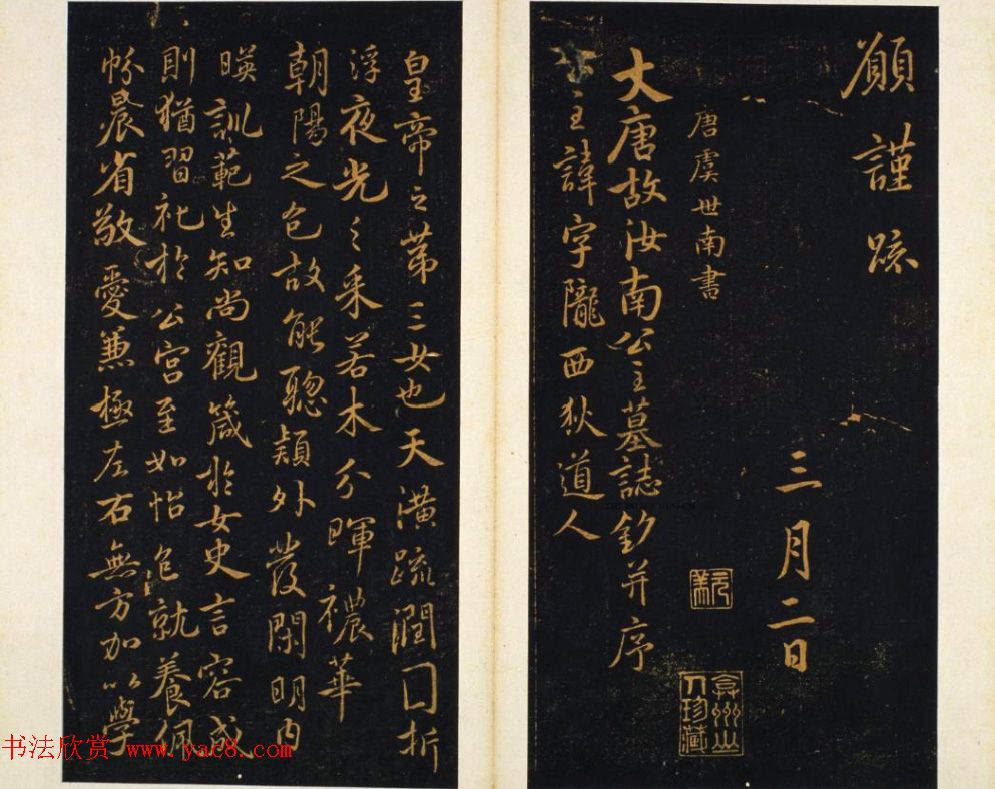 願謹疏
三月二日
唐虞世南書
大唐故汝南公主墓誌銘并序
公主諱字隴西狄道人
元美
弇州山人珍藏
皇帝之苐三女也天潢疏潤囗折
浮夜光之采若木分暉穠華
朝陽之色故能聰穎外發閑明内
暎訓範生知尚觀箴於女史言容成
則猶習礼於公宮至如怡色就養佩
帉晨省敬愛兼極左右無方加以學
书法欣赏 www.yac8.com